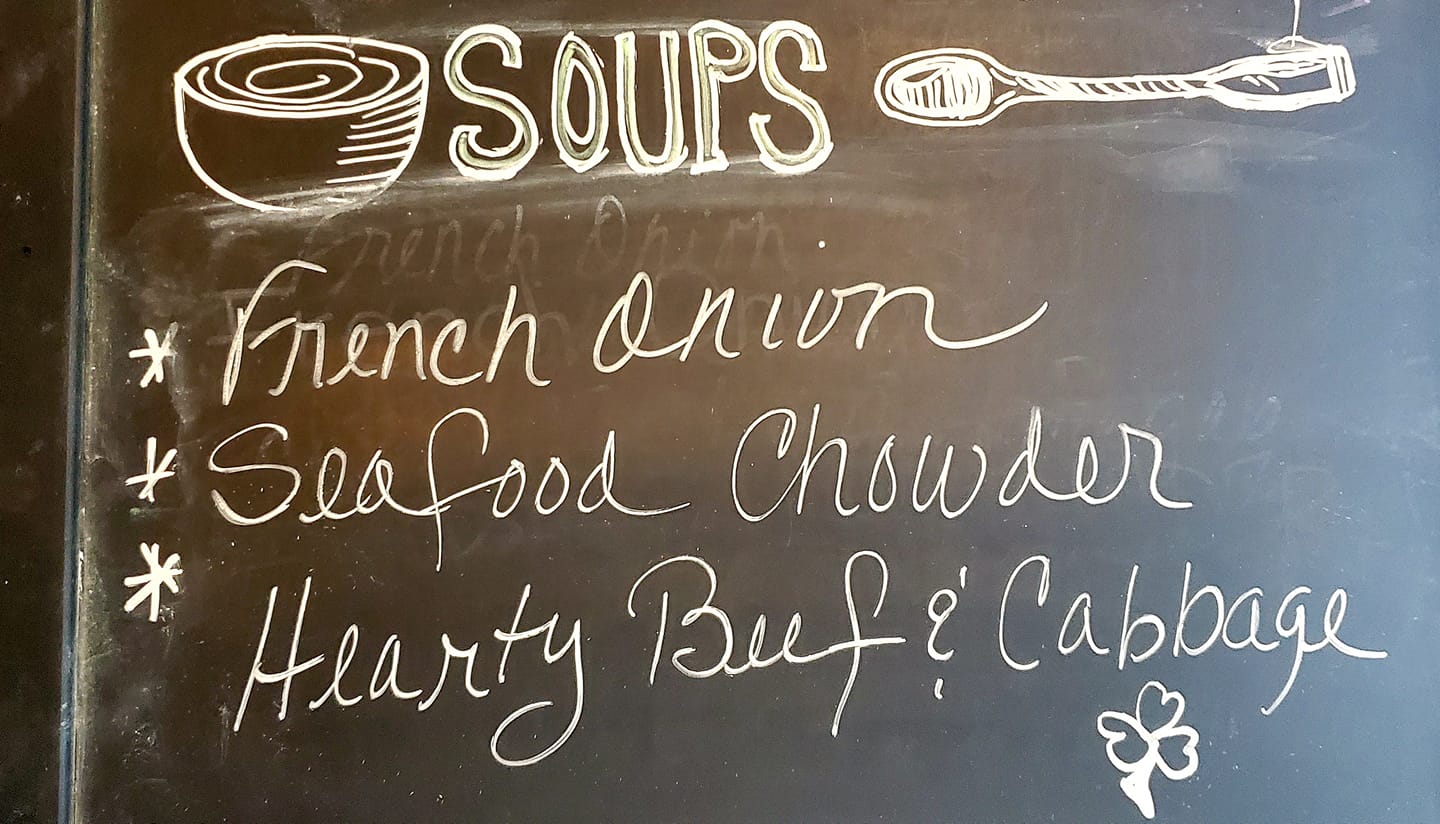 SOUPS
French Onion
* French Onion
* Seafood Chowder
* Hearty Beef & Cabbage